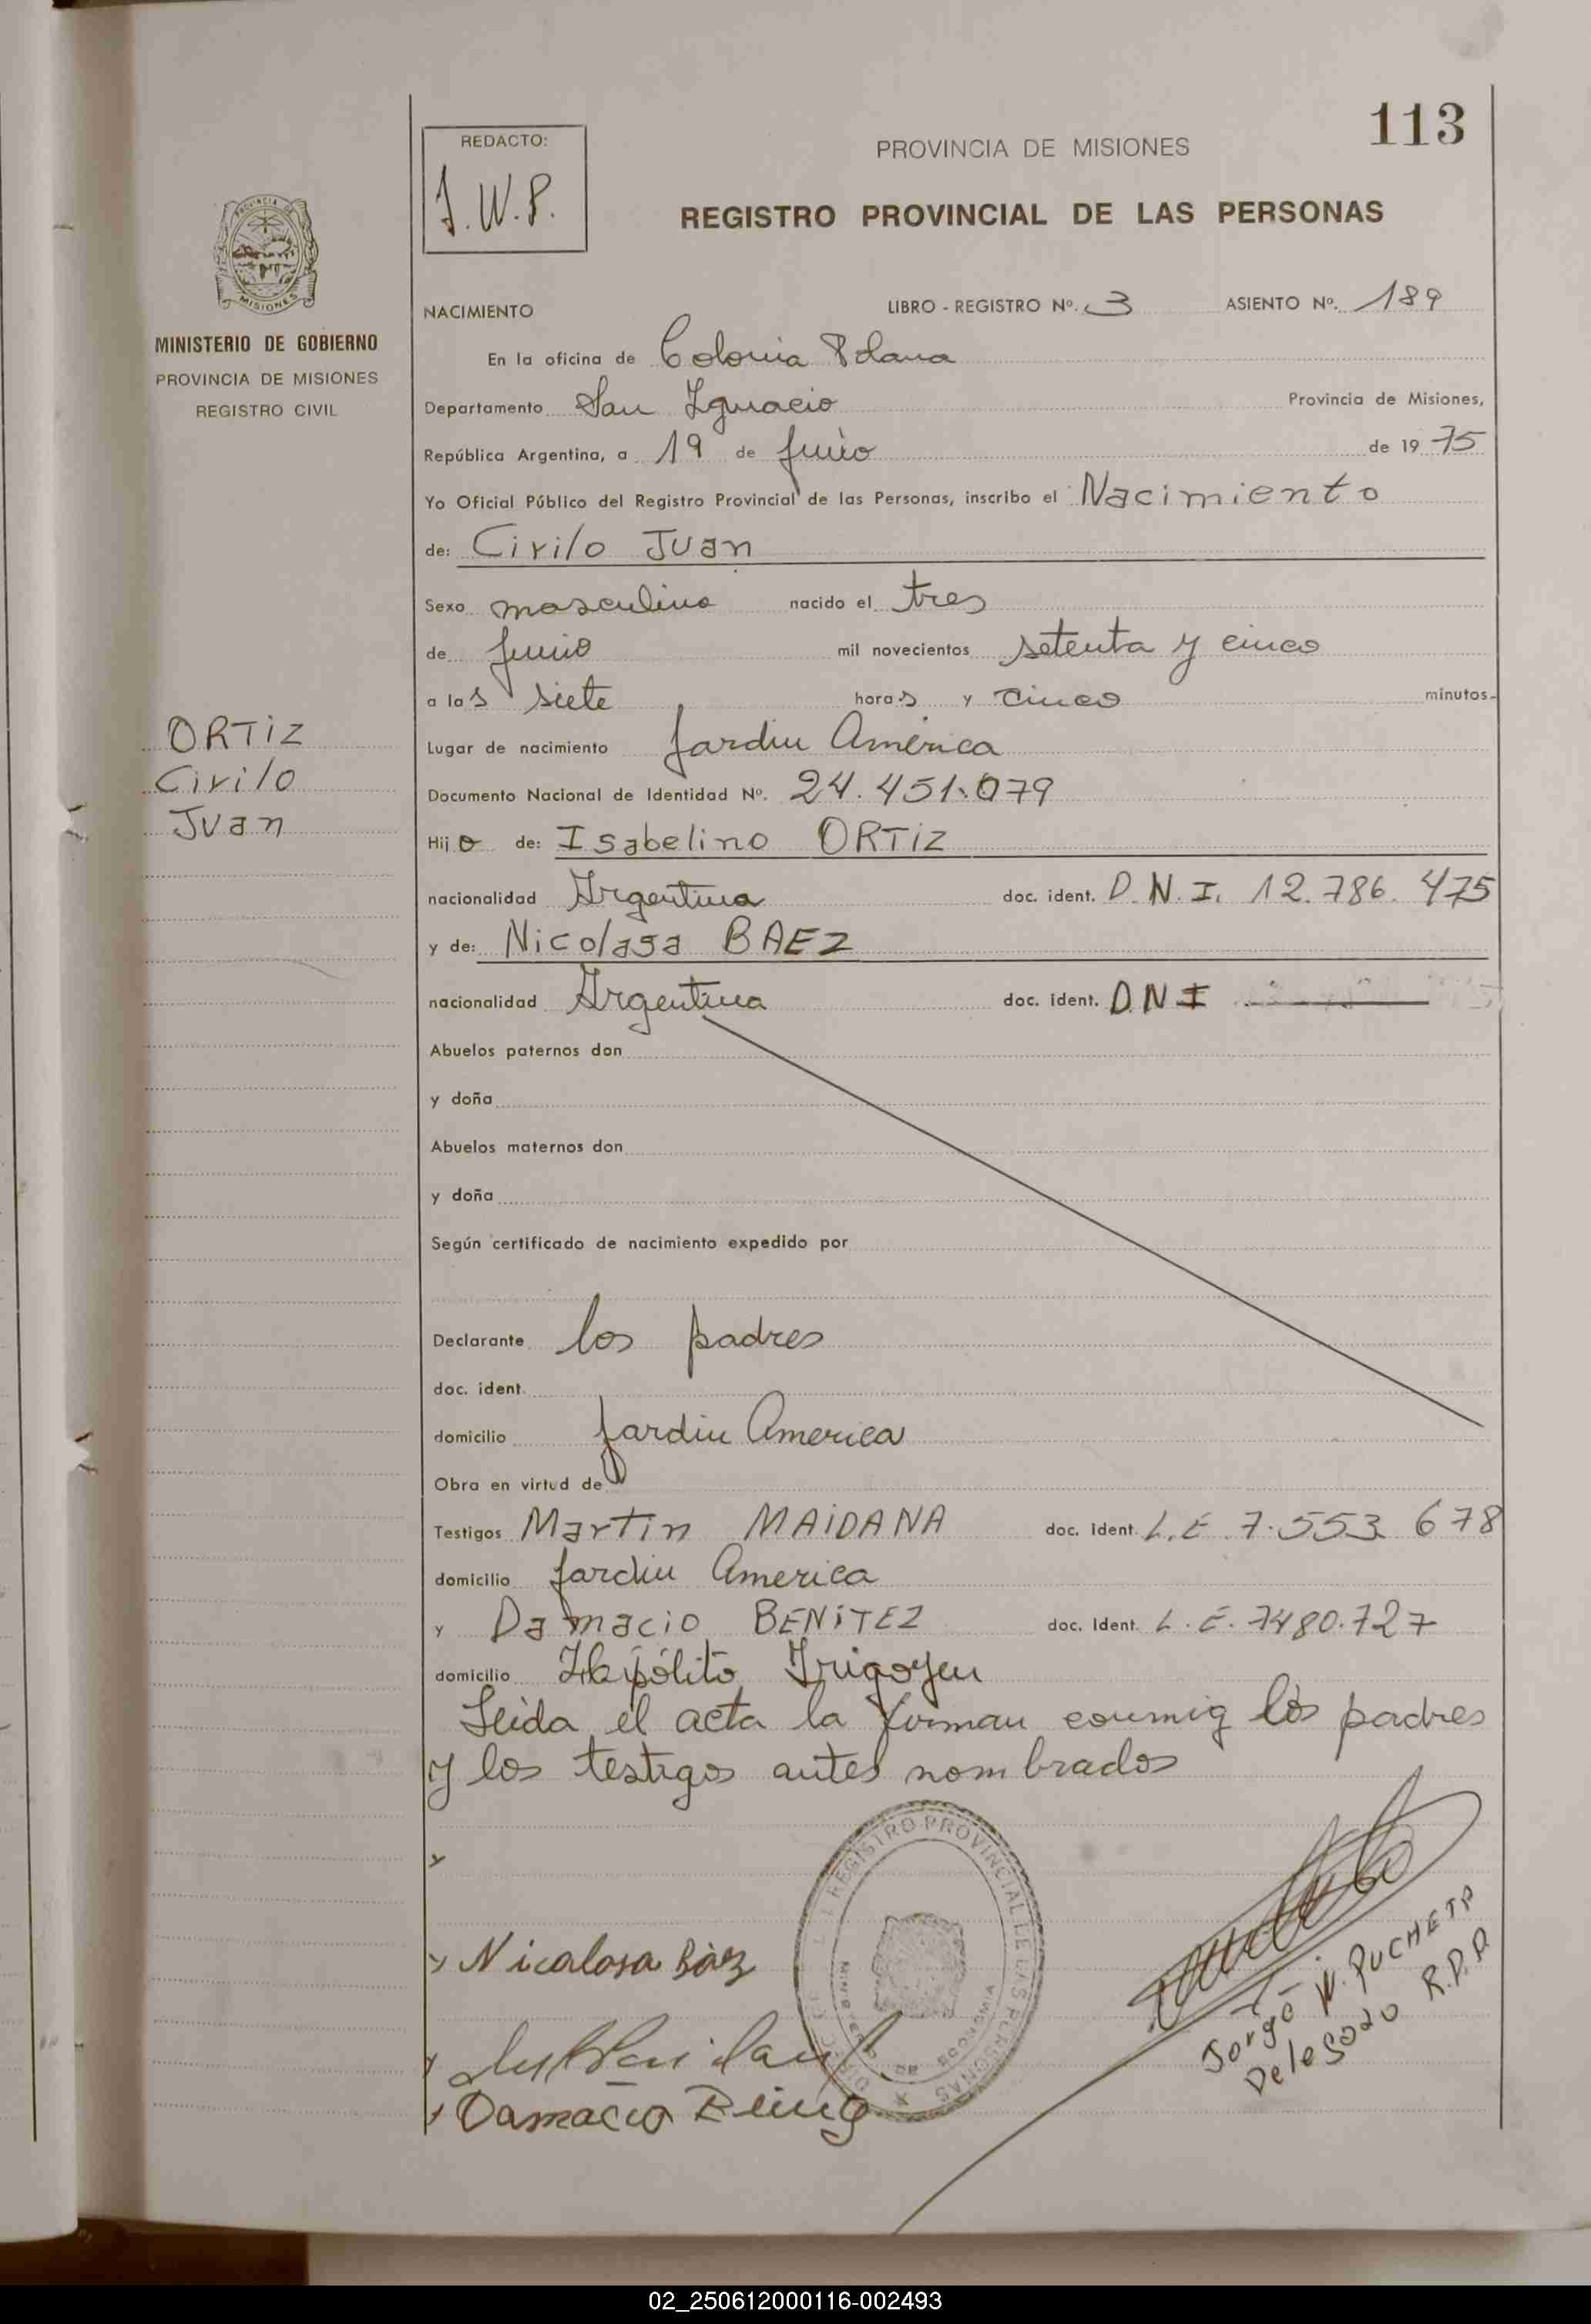 113
REDACTO:
J.W.P.
PROVINCIA DE MISIONES
REGISTRO PROVINCIAL DE LAS PERSONAS
PROVINCIA DE
MISIONES
MINISTERIO DE GOBIERNO
PROVINCIA DE MISIONES
REGISTRO CIVIL
NACIMIENTO LIBRO - REGISTRO Nº. 3 ASIENTO Nº. 189
En la oficina de Colonia Polana
Departamento San Ignacio Provincia de Misiones,
República Argentina, a 19 de Junio de 19 75
Yo Oficial Público del Registro Provincial de las Personas, inscribo el Nacimiento
de: Cirilo Juan
Sexo masculino nacido el tres
de Junio mil novecientos setenta y cinco
a las siete horas y cinco minutos
ORTiZ
Cirilo
Juan
Lugar de nacimiento Jardin América
Documento Nacional de Identidad Nº. 24.451.079
Hijo de: Isabelino ORTiZ
nacionalidad Argentina doc. ident. D.N.I. 12.786.475
y de: Nicolasa BAEZ
nacionalidad Argentina doc. ident. D.N.I
Abuelos paternos don
y doña
Abuelos maternos don
y doña
Según certificado de nacimiento expedido por
Declarante los padres
doc. ident.
domicilio Jardin America
Obra en virtud de
Testigos Martin MAiDANA doc. ident. L.E 7.553.678
domicilio Jardin America
y Damacio BENiTEZ doc. Ident. L.E. 7480.727
domicilio Hipólito Irigoyen
Leida el acta la firman conmig los padres
y los testigos antes nombrados
REGISTRO PROVINCIAL DE LAS PERSONAS
Nicolasa Báez
Jorge W. PUCHETA
Delegado R.P.P.
Damacio
02_250612000116-002493